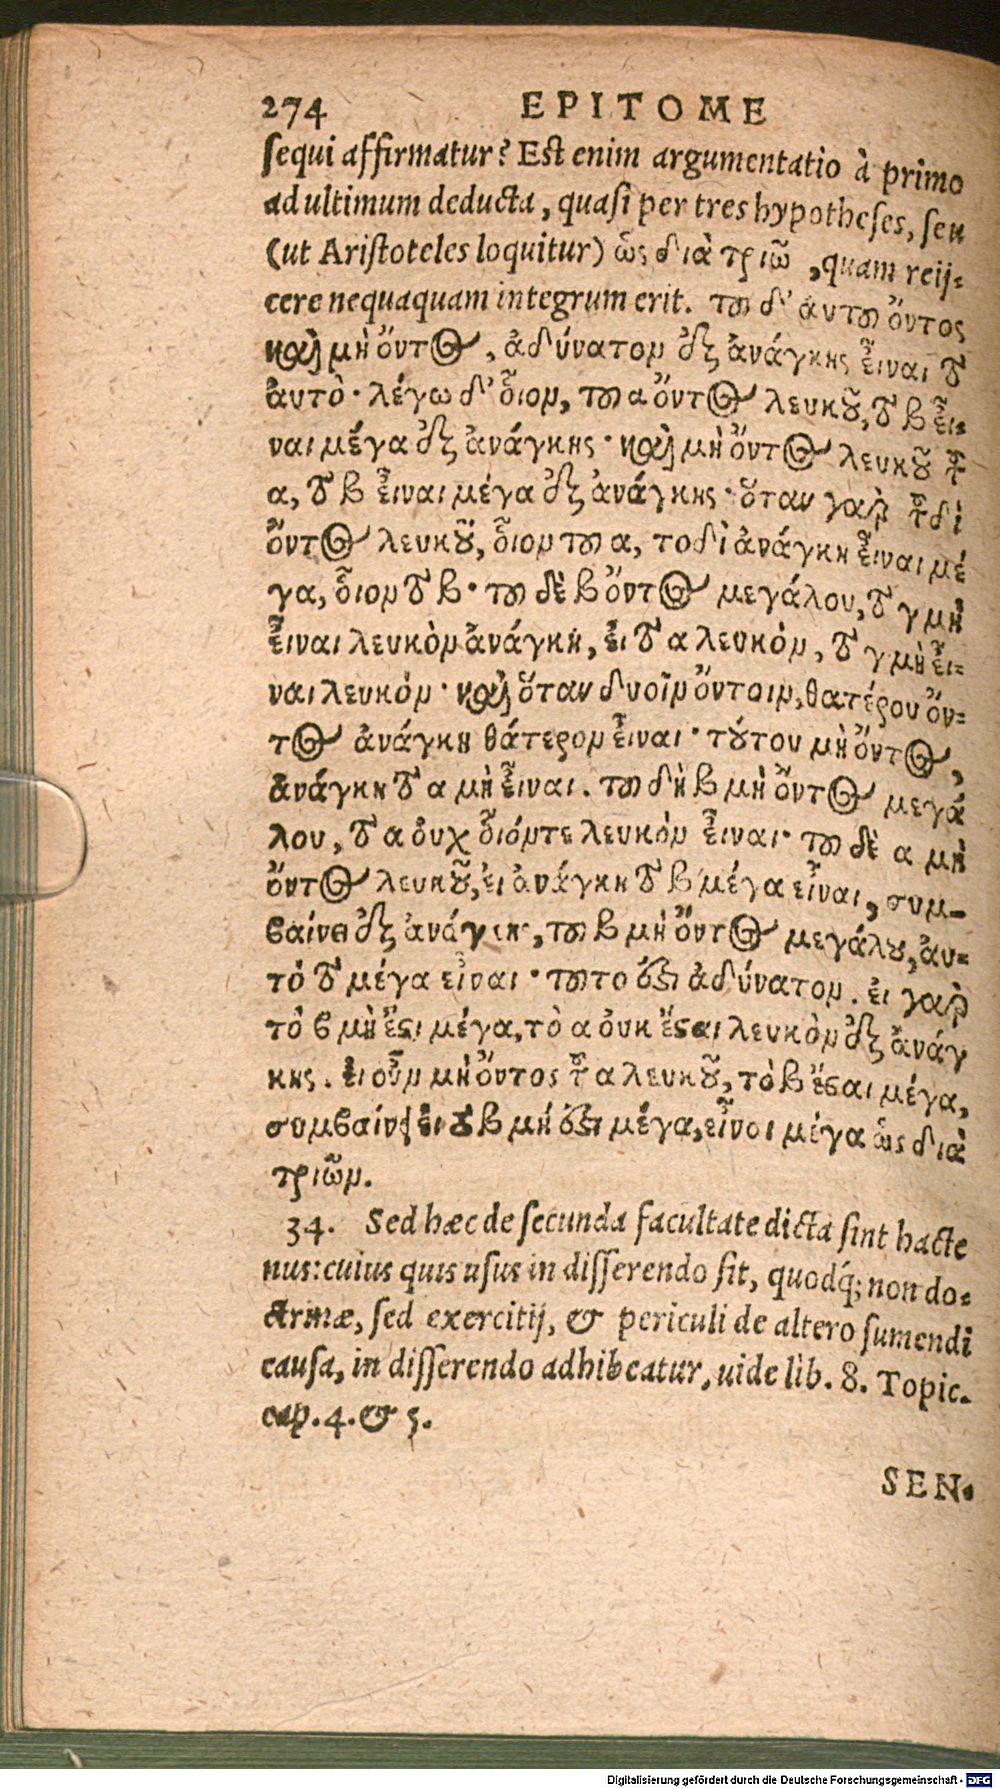 274 EPITOME
sequi affirmatur? Est enim argumentatio à primo
ad ultimum deducta, quasi per tres hypotheses, seu
(ut Aristoteles loquitur) ὡς διὰ τριῶ, quam reij-
cere nequaquam integrum erit. τοῦ δ' ἀυτοῦ ὄντος
καὶ μὴ ὄντος, ἀδύνατον ὅξ ἀνάγκης εἶναι τὸ
ἀυτὸ· λέγω δ' οἷον, τοῦ α ὄντος λευκοῦ, τὸ β εἶ-
ναι μέγα ὅξ ἀνάγκης· καὶ μὴ ὄντος λευκοῦ τοῦ
α, τὸ β εἶναι μέγα ὅξ ἀνάγκης· ὅταν γαρ τοῦδὶ
ὄντος λευκοῦ, οἷον τοῦ α, τοδὶ ἀνάγκη εἶναι μέ
γα, οἷον τὸ β· τοῦ δὲ β ὄντος μεγάλου, τὸ γ μὴ
εἶναι λευκὸν ἀνάγκη, εἰ τὸ α λευκὸν, τὸ γ μὴ εἶ-
ναι λευκόν· καὶ ὅταν δυοῖν ὄντοιν, θατέρου ὄν-
τος ἀνάγκη θάτερον εἶναι· τούτου μὴ ὄντος,
ἀνάγκη τὸ α μὴ εἶναι. τοῦ δὴ β μὴ ὄντος μεγά
λου, τὸ α ὀυχ οἷόντε λευκὸν εἶναι· τοῦ δὲ α μὴ
ὄντος λευκοῦ, ἐι ἀνάγκη τὸ β μέγα εἶναι, συμ-
βαίνει ὅξ ἀνάγκης, τοῦ β μὴ ὄντος μεγάλου, ἀυ-
τὸ τὸ μέγα εἶναι· τοῦτο δ' ἀδύνατον. ἐι γαρ
τὸ β μὴ ἔστι μέγα, τὸ α ὀυκ ἔσται λευκὸν ὅξ ἀνάγ
κης. ἐι οὖν μὴ ὄντος τοῦ α λευκοῦ, τὸ β ἔσται μέγα,
συμβαίνει ἐι τὸ β μή ὅξι μέγα, εἶνοι μέγα ὡς διὰ
τριῶν.
34. Sed hæc de secunda facultate dicta sint hacte
nus: cuius quis usus in disserendo sit, quodq́; non do-
ctrinæ, sed exercitij, & periculi de altero sumendi
causa, in disserendo adhibeatur, uide lib. 8. Topic.
cap. 4. & 5.
SEN-
Digitalisierung gefördert durch die Deutsche Forschungsgemeinschaft - DFG